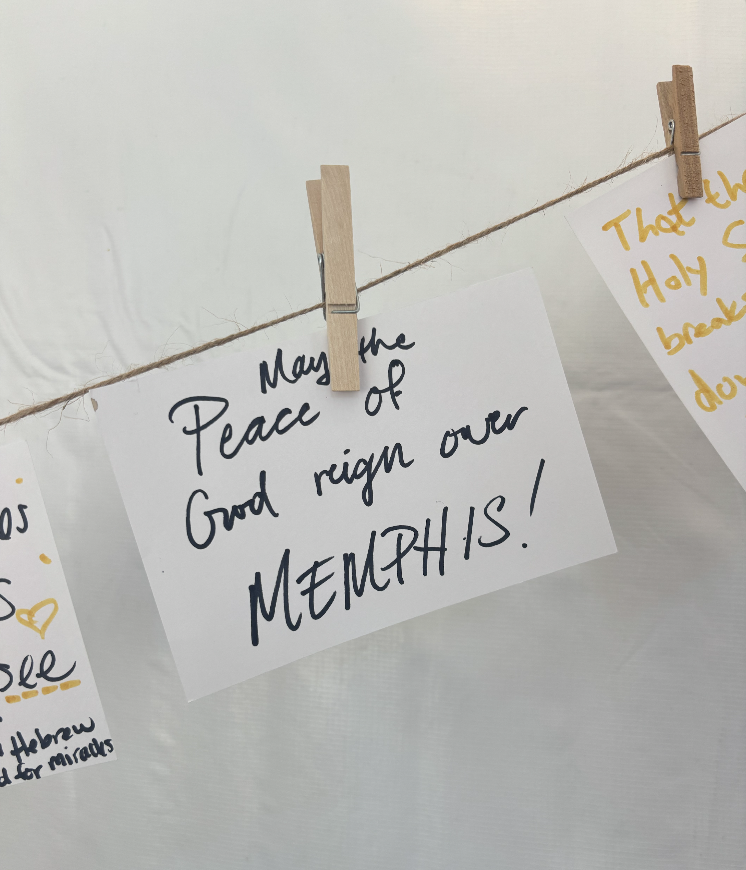 May the
Peace of
God reign over
MEMPHIS!
That the
Holy
see
Hebrew
for miracles